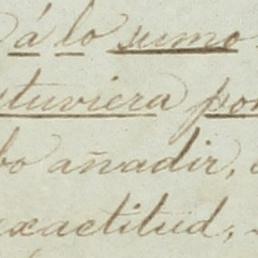 á lo sumo
tuviera por
bo añadir,
exactitud,